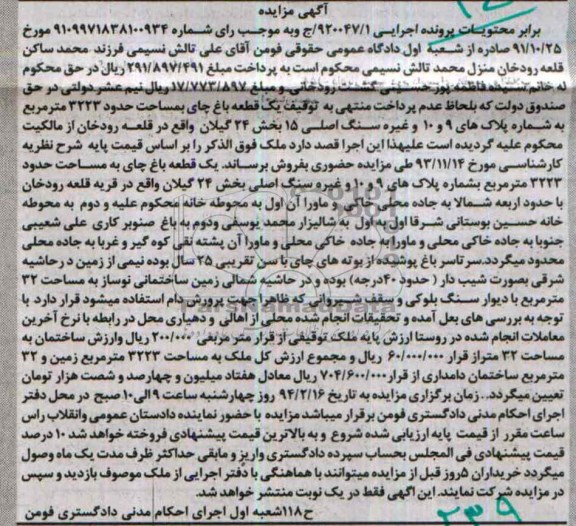 آگهی مزایده
برابر محتویات پرونده اجرایی ۹۲۰۰۴۷/۱/ج وبه موجب رای شماره ۹۱۰۹۹۷۱۸۳۸۱۰۰۹۳۴ مورخ
۹۱/۱۰/۲۵ صادره از شعبه اول دادگاه عمومی حقوقی فومن آقای علی تالش نسیمی فرزند محمد ساکن
قلعه رودخان منزل محمد تالش نسیمی محکوم است به پرداخت مبلغ ۲۹۱/۸۹۷/۴۹۱ ریال در حق محکوم
له خانم سیده فاطمه پور حسینی گشت رودخانی و مبلغ ۱۷/۷۷۳/۸۹۷ ریال نیم عشر دولتی در حق
صندوق دولت که بلحاظ عدم پرداخت منتهی به توقیف یک قطعه باغ چای بمساحت حدود ۳۲۲۳ مترمربع
به شماره پلاک های ۹ و ۱۰ و غیره سنگ اصلی ۱۵ بخش ۲۴ گیلان واقع در قلعه رودخان از مالکیت
محکوم علیه گردیده است علیهذا این اجرا قصد دارد ملک فوق الذکر را بر اساس قیمت پایه شرح نظریه
کارشناسی مورخ ۹۳/۱۱/۱۴ طی مزایده حضوری بفروش برساند. یک قطعه باغ چای به مساحت حدود
۳۲۲۳ مترمربع بشماره پلاک های ۹ و ۱۰ و غیره سنگ اصلی بخش ۲۴ گیلان واقع در قریه قلعه رودخان
با حدود اربعه شمالا به جاده محلی خاکی و ماورا آن اول به محوطه خانه محکوم علیه و دوم به محوطه
خانه حسین بوستانی شرقا اول اول به شالیزار محمد یوسفی ودوم به باغ صنوبر کاری علی شعیبی
جنوبا به جاده خاکی محلی و ماورا به جاده خاکی محلی و ماورا آن پشته نقی کوه گیر و غربا به جاده محلی
محدود میگردد.سرتاسر باغ پوشیده از بوته های چای با سن تقریبی ۲۵ سال بوده نیمی از زمین د رحاشیه
شرقی بصورت شیب دار ( حدود ۴۰درجه) بوده و در حاشیه شمالی زمین ساختمانی نوساز به مساحت ۳۲
مترمربع با دیوار سنگ بلوکی و سقف شیروانی که ظاهرا جهت پرورش دام استفاده میشود قرار دارد با
توجه به بررسی های بعل آمده و تحقیقات انجام شده محلی از اهالی و دهیاری محل در رابطه با نرخ آخرین
معاملات انجام شده در روستا ارزش پایه ملک توقیفی از قرار متر مربعی ۲۰۰/۰۰۰ ریال وارزش ساختمان به
مساحت ۳۲ متراز قرار ۶۰/۰۰۰/۰۰۰ ریال و مجموع ارزش کل ملک به مساحت ۳۲۲۳ مترمربع زمین و ۳۲
مترمربع ساختمان دامداری از قرار ۷۰۴/۶۰۰/۰۰۰ ریال معادل هفتاد میلیون و چهارصد و شصت هزار تومان
تعیین میگردد.. زمان برگزاری مزایده به تاریخ ۹۴/۲/۱۶ روز چهارشنبه ساعت ۹ الی ۱۰ صبح در محل دفتر
اجرای احکام مدنی دادگستری فومن برقرار میباشد مزایده با حضور نماینده دادستان عمومی وانقلاب راس
ساعت مقرر از قیمت پایه ارزیابی شده شروع و به بالاترین قیمت پیشنهادی فروخته خواهد شد ۱۰ درصد
قیمت پیشنهادی فی المجلس بحساب سپرده دادگستری واریز و مابقی حداکثر ظرف مدت یک ماه وصول
میگردد خریداران ۵روز قبل از مزایده میتوانند با هماهنگی با دفتر اجرایی از ملک موصوف بازدید و سپس
در مزایده شرکت نمایند. این اگهی فقط در یک نوبت منتشر خواهد شد.
ح۱۱۸ شعبه اول اجرای احکام مدنی دادگستری فومن
۲۳۹